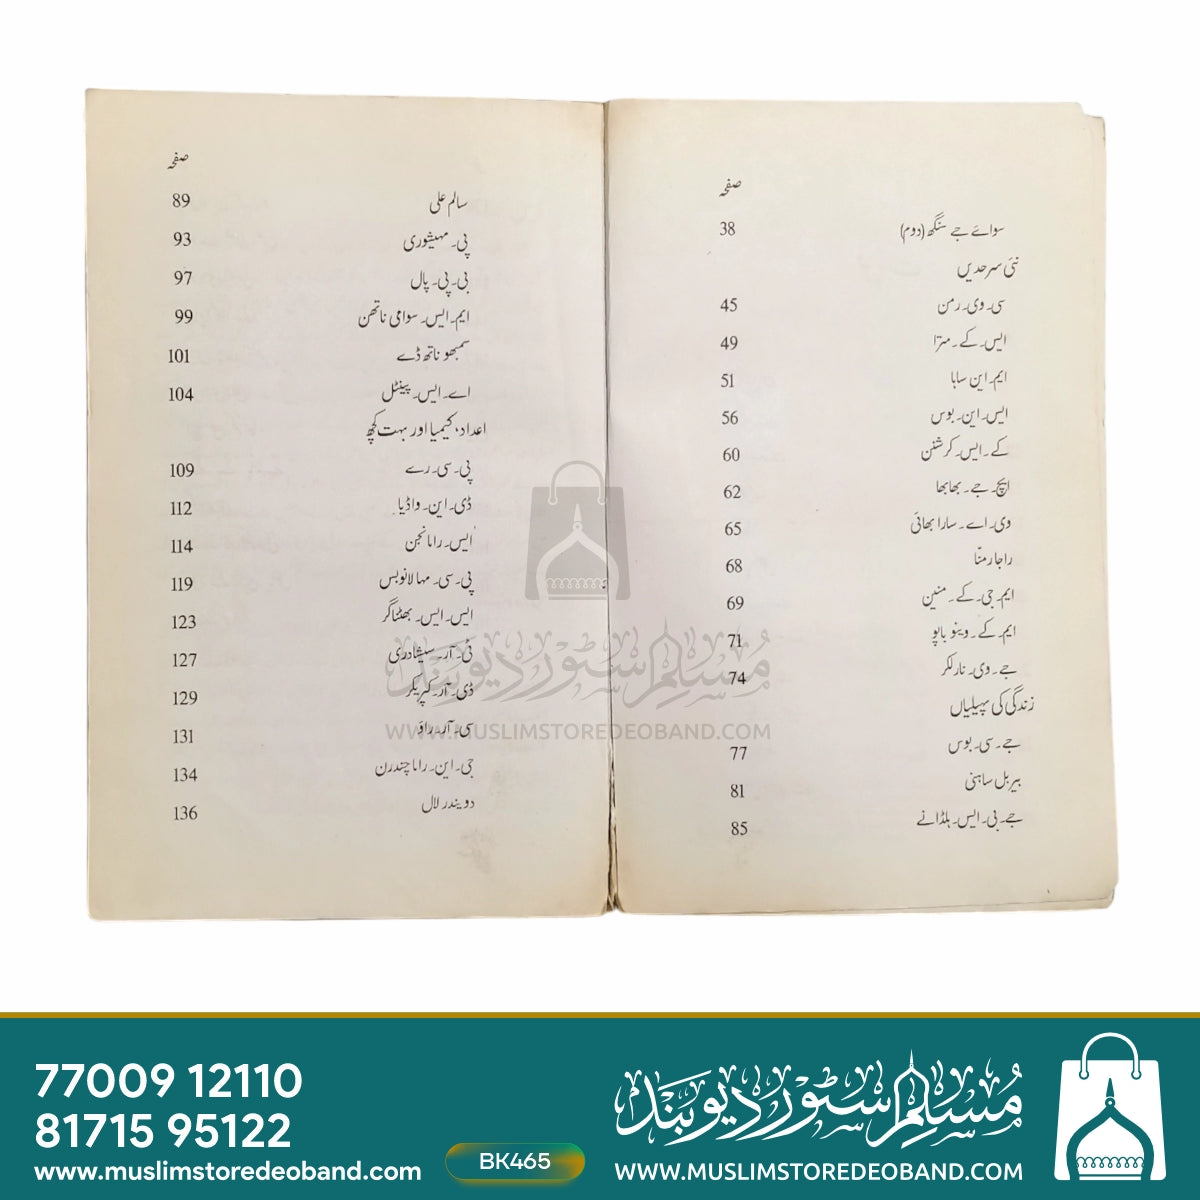 صفحہ
سوائے جے سنگھ (دوم) 38
نئی سرحدیں
سی۔ وی۔ رمن 45
ایس۔ کے۔ مترا 49
ایم۔ این ساہا 51
ایس۔ این۔ بوس 56
کے۔ ایس۔ کرشنن 60
ایچ۔ جے۔ بھابھا 62
وی۔ اے۔ سارا بھائی 65
راجا رمنّا 68
ایم۔ جی۔ کے۔ منین 69
ایم۔ کے۔ وینو باپو 71
جے۔ وی۔ نارلکر 74
زندگی کی پہیلیاں
جے۔ سی۔ بوس 77
بیربل ساہنی 81
جے۔ بی۔ ایس۔ ہلڈانے 85
صفحہ
سالم علی 89
پی۔ مہیشوری 93
بی۔ پی۔ پال 97
ایم۔ ایس۔ سوامی ناتھن 99
سمبھو ناتھ ڈے 101
اے۔ ایس۔ پینٹل 104
اعداد، کیمیا اور بہت کچھ
پی۔ سی۔ رے 109
ڈی۔ این۔ واڈیا 112
ایس۔ رامانجن 114
پی۔ سی۔ مہالانوبس 119
ایس۔ ایس۔ بھٹناگر 123
ٹی۔ آر۔ سیشادری 127
ڈی۔ آر۔ کپریکر 129
سی۔ آر۔ راؤ 131
جی۔ این۔ راماچندرن 134
دویندر لال 136
مسلم سٹور دیوبند
WWW.MUSLIMSTOREDEOBAND.COM
77009 12110
81715 95122
www.muslimstoredeoband.com
BK465
مسلم سٹور دیوبند
WWW.MUSLIMSTOREDEOBAND.COM